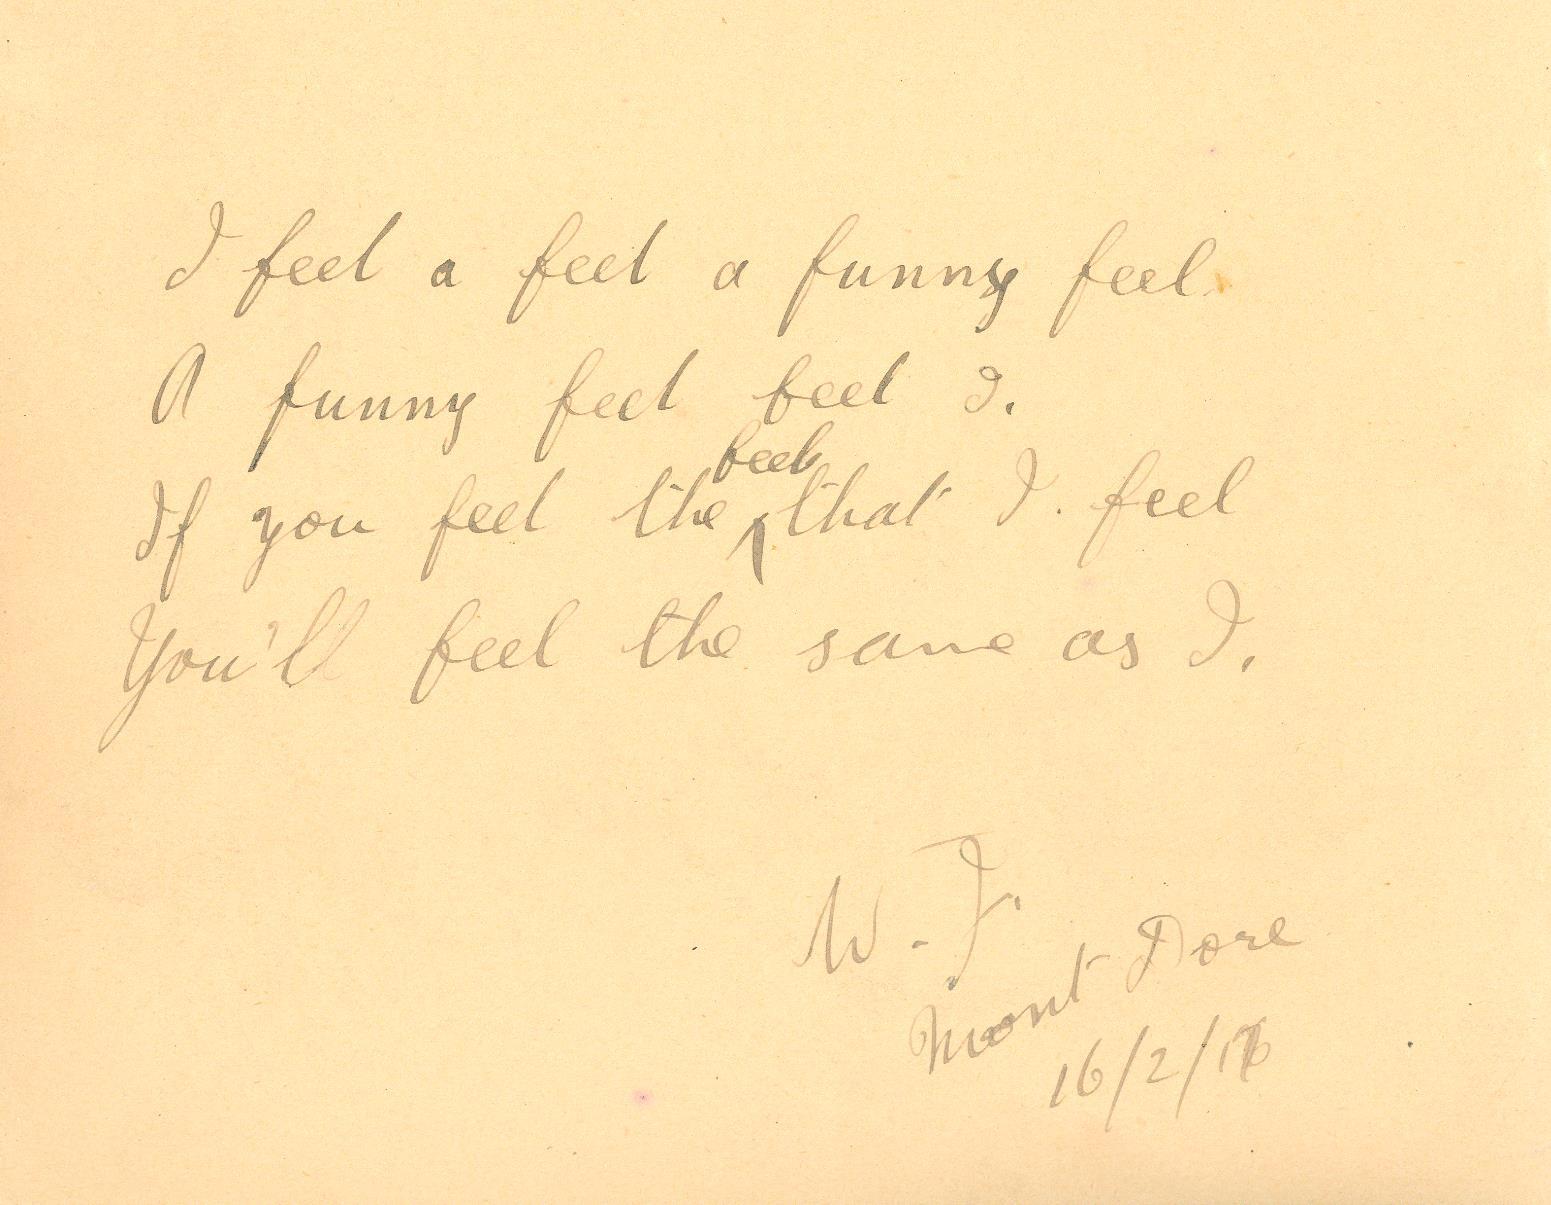 I feel a feel a funny feel.
A funny feel feel I.
If you feel the feel that I feel
You'll feel the same as I.
W. F.
Mont Dore
16/2/16